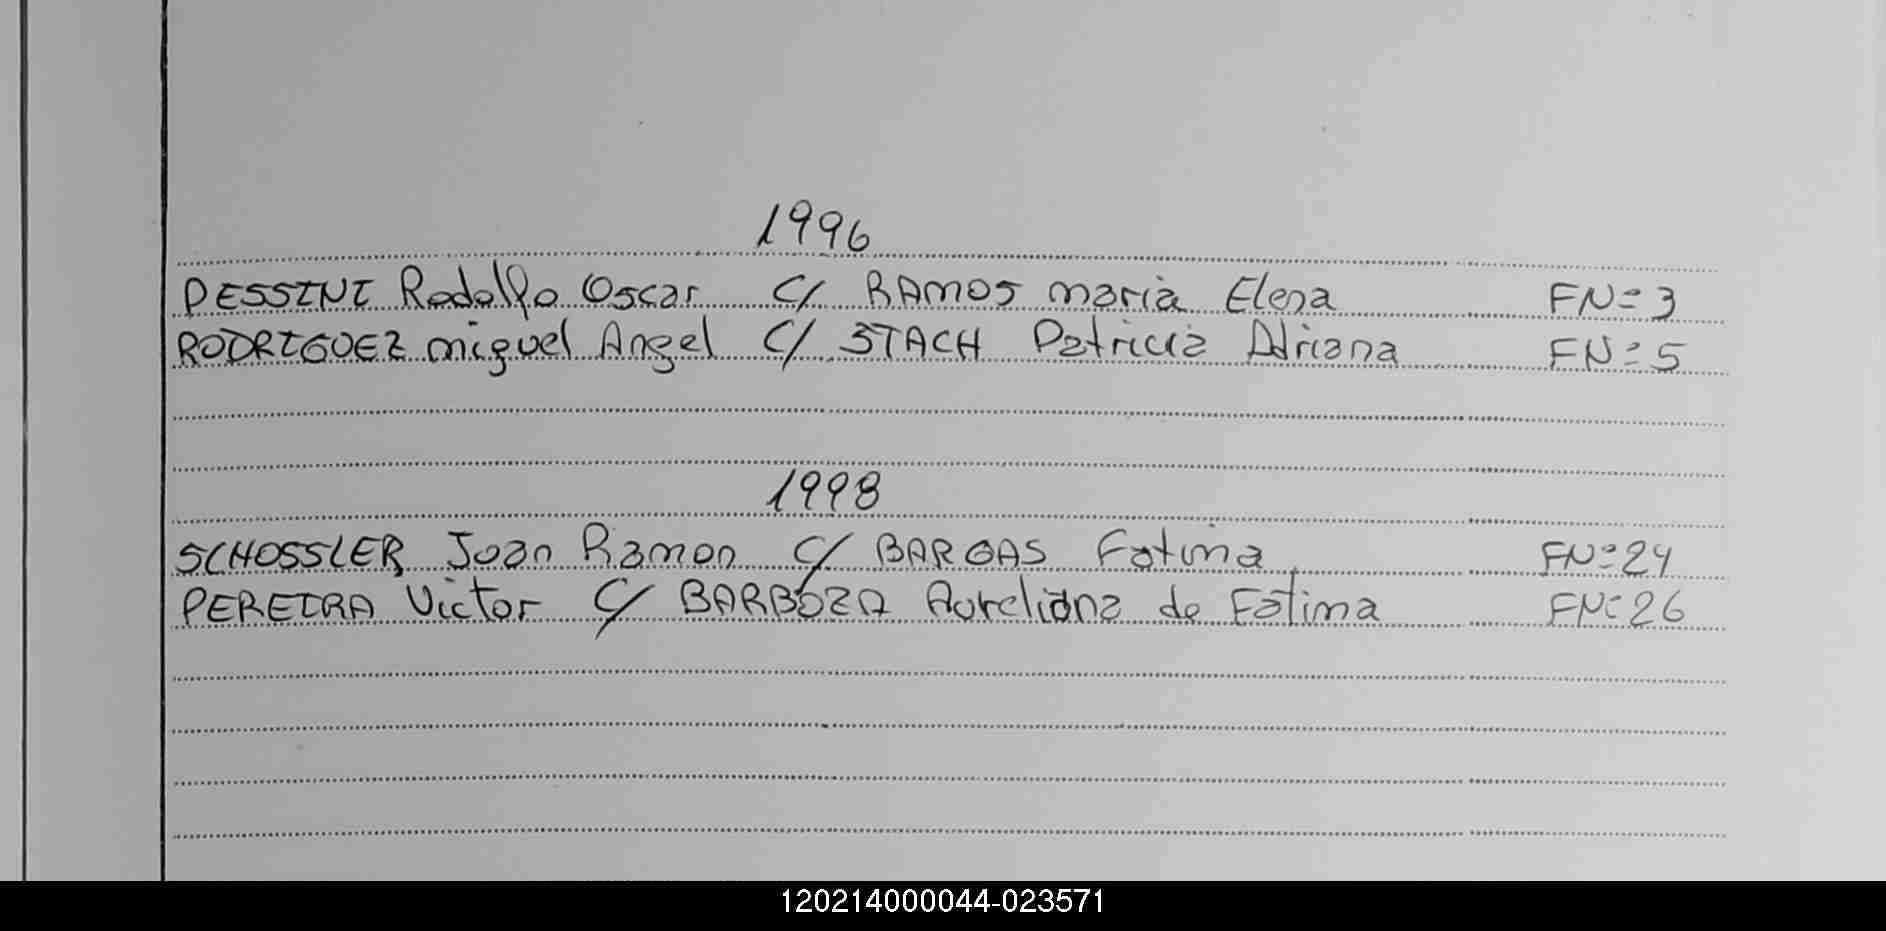 1996
PESSINI Rodolfo Oscar C/ RAMOS maria Elena FNº 3
RODRIGUEZ miguel Angel C/ STACH Patricia Adriana FNº 5
1998
SCHOSSLER Juan Ramon C/ BARGAS Fatima FNº 24
PEREIRA Victor C/ BARBOZA Aureliana de Fatima FNº 26
120214000044-023571